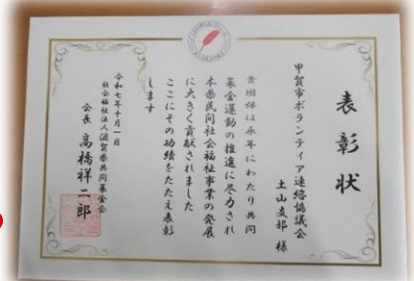 表彰状
甲賀市ボランティア連絡協議会
土山支部 様
貴団体は永年にわたり共同
募金運動の推進に尽力され
本県民間社会福祉事業の発展
に大きく貢献されました
ここにその功績をたたえ表彰
します
令和七年十月一日
社会福祉法人滋賀県共同募金会
会長 高橋祥二郎